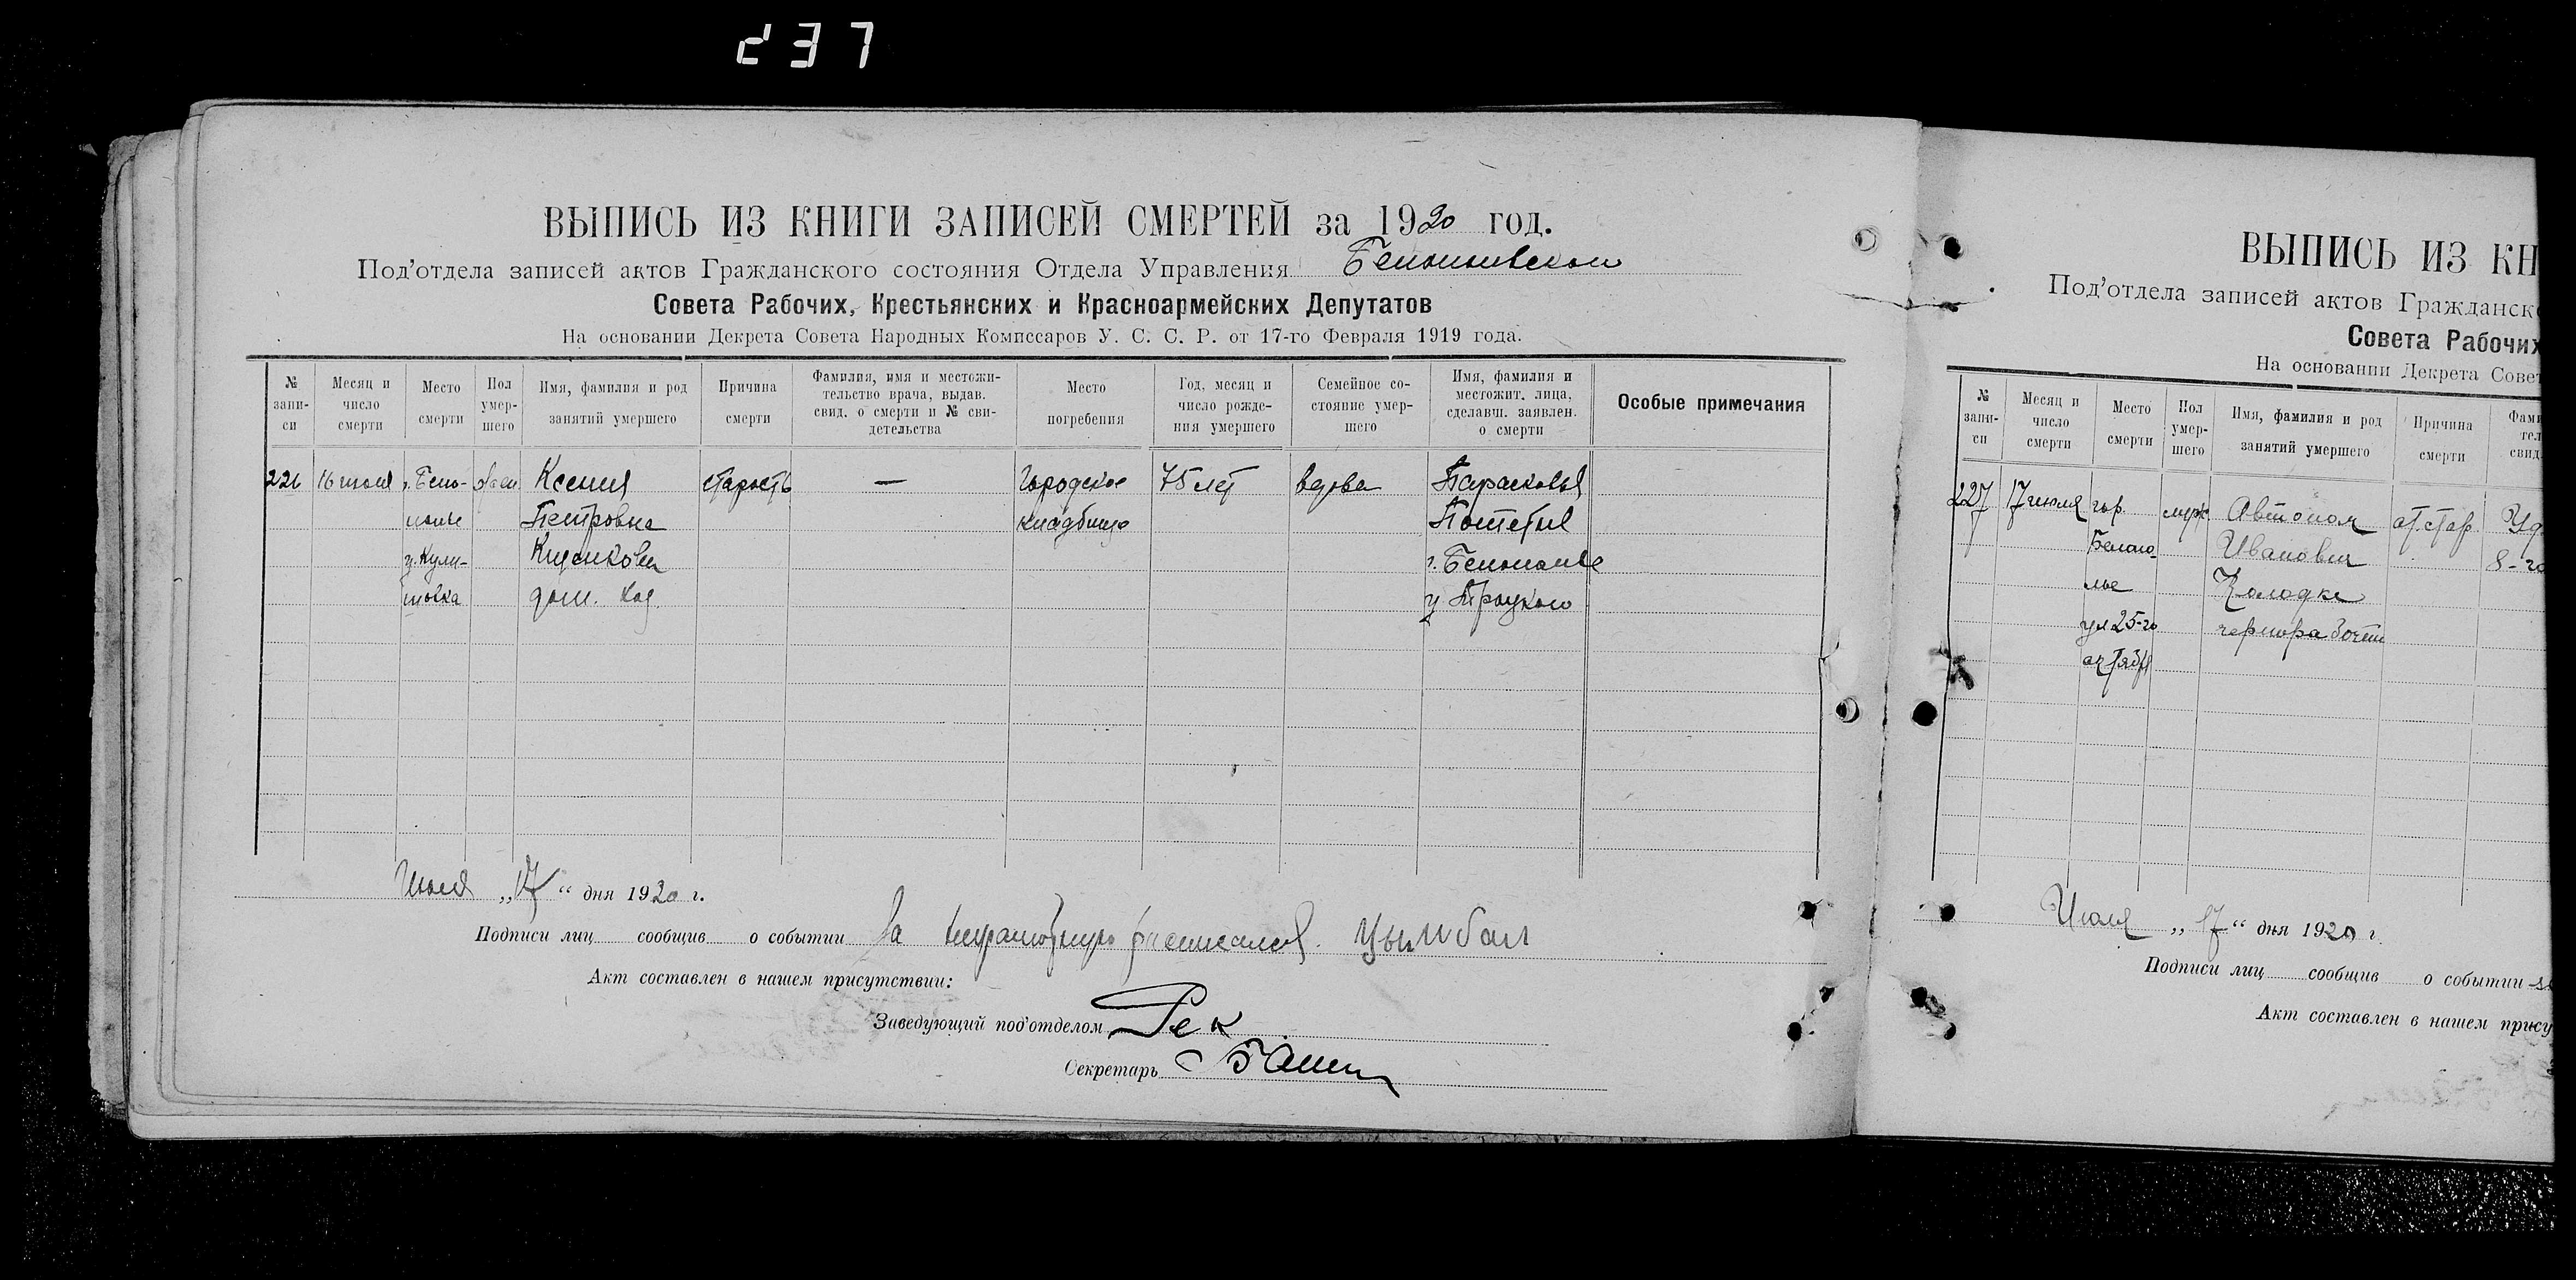 237
ВЫПИСЬ ИЗ КНИГИ ЗАПИСЕЙ СМЕРТЕЙ за 1920 год.
Под'отдела записей актов Гражданского состояния Отдела Управления Белопольского
Совета Рабочих, Крестьянских и Красноармейских Депутатов
На основании Декрета Совета Народных Комиссаров У. С. С. Р. от 17-го Февраля 1919 года.
№ записи
Месяц и число смерти
Место смерти
Пол умершего
Имя, фамилия и род занятий умершего
Причина смерти
Фамилия, имя и местожительство врача, выдав. свид. о смерти и № свидетельства
Место погребения
Год, месяц и число рождения умершего
Семейное состояние умершего
Имя, фамилия и местожит. лица, сделавш. заявлен. о смерти
Особые примечания
226 16 июля г. Бело- жен. Ксения старость — Городское 75 лет вдова Парасковья
полье Петровна кладбище
у. Кули- г. Белополье
шовка дом. хоз. у Троцкого
Июля „17“ дня 1920 г.
Подписи лиц сообщив о событии За неграмотную расписался Цымбал
Акт составлен в нашем присутствии:
Заведующий под'отделом
Секретарь
ВЫПИСЬ ИЗ КН
Под'отдела записей актов Гражданск
Совета Рабочих
На основании Декрета Совет
№ записи
Месяц и число смерти
Место смерти
Пол умершего
Имя, фамилия и род занятий умершего
Причина смерти
227 17 июля гор. муж. Автоном от стар.
Белопо- Иванович
лье Колодка 8-го
ул 25-го чернорабочий
октября
Июля „17“ дня 1920 г.
Подписи лиц сообщив о событии
Акт составлен в нашем прису